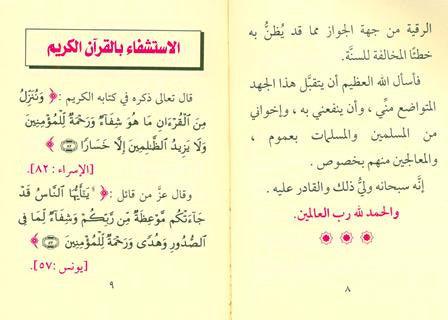 الرقية من جهة الجواز مما قد يُظنُّ به
خطئًا المخالفة للسنَّة.
فاسأل الله العظيم أن يتقبَّل هذا الجهد
المتواضع منِّي ، وأن ينفعني به ، وإخواني
من المسلمين والمسلمات بعموم ،
والمعالجين منهم بخصوص .
إنَّه سبحانه وليُّ ذلك والقادر عليه .
والحمد لله رب العالمين.
٨
الاستشفاء بالقرآن الكريم
قال تعالى ذكره في كتابه الكريم : ﴿ وَنُنَزِّلُ
مِنَ ٱلْقُرْءَانِ مَا هُوَ شِفَآءٌ وَرَحْمَةٌ لِّلْمُؤْمِنِينَ
وَلَا يَزِيدُ ٱلظَّٰلِمِينَ إِلَّا خَسَارًا ﴾
[الإسراء : ٨٢].
وقال عزَّ من قائل : ﴿ يَٰٓأَيُّهَا ٱلنَّاسُ قَدْ
جَآءَتْكُم مَّوْعِظَةٌ مِّن رَّبِّكُمْ وَشِفَآءٌ لِّمَا فِى
ٱلصُّدُورِ وَهُدًى وَرَحْمَةٌ لِّلْمُؤْمِنِينَ ﴾
[يونس :٥٧].
٩